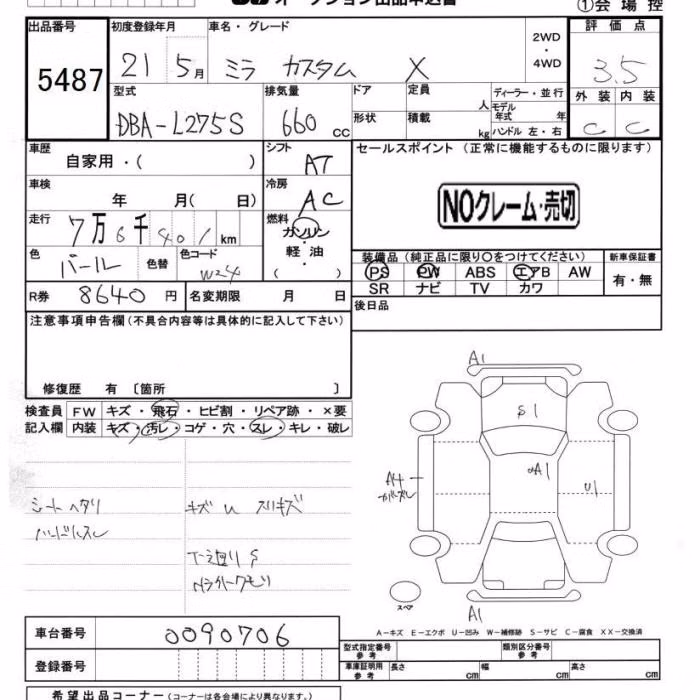 オークション出品申込書
①会場控
出品番号 5487
初度登録年月 21 5月
車名・グレード ミラ カスタム X
2WD・4WD
評価点 3.5
型式 DBA-L275S
排気量 660 CC
ドア
形状
定員 人
積載 kg
ディーラー・並行
モデル年式 年
ハンドル 左・右
外装 内装
C C
車歴 自家用・( )
シフト AT
セールスポイント (正常に機能するものに限ります)
車検 年 月( 日)
冷房 AC
NOクレーム・売切
走行 7万6千401km
燃料 ガソリン
軽油
( )
色 パール 色替
色コード W24
装備品 (純正品に限り〇をつけてください)
新車保証書
PS PW ABS エアB AW
有・無
SR ナビ TV カワ
R券 8640円
名変期限 月 日
後日品
注意事項申告欄(不具合内容等は具体的に記入して下さい)
修復歴 有 〔箇所 〕
検査員 FW キズ・飛石・ヒビ割・リペア跡・×要
記入欄 内装 キズ・汚レ・コゲ・穴・スレ・キレ・破レ
シートヘタリ
ハンドルスレ
キズ U スリキズ
下廻り S
A1
S1
A1
A4
U1
スペア
A1
A-キズ E-エクボ U-凹み W-補修跡 S-サビ C-腐食 XX-交換済
車台番号 0090706
登録番号
型式指定番号 参考
類別区分番号 参考
車庫証明用 参考 長さ cm 幅 cm 高さ cm
希望出品コーナー(コーナーは各会場により異なります。)